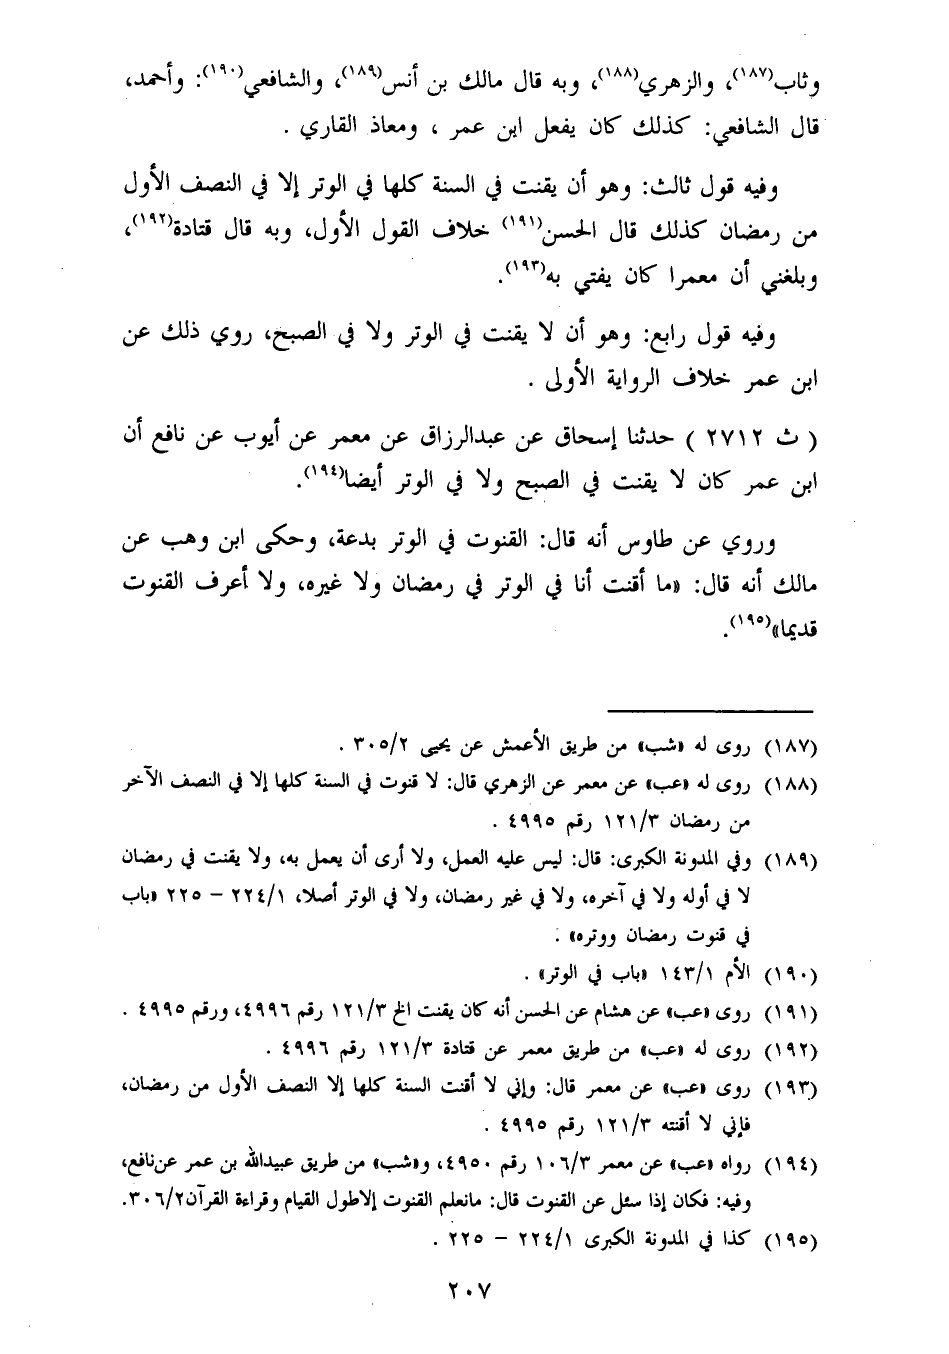 وثاب(١٨٧)، والزهري(١٨٨)، وبه قال مالك بن أنس(١٨٩)، والشافعي(١٩٠): وأحمد،
قال الشافعي: كذلك كان يفعل ابن عمر ، ومعاذ القاري .
وفيه قول ثالث: وهو أن يقنت في السنة كلها في الوتر إلا في النصف الأول
من رمضان كذلك قال الحسن(١٩١) خلاف القول الأول، وبه قال قتادة(١٩٢)،
وبلغني أن معمرا كان يفتي به(١٩٣).
وفيه قول رابع: وهو أن لا يقنت في الوتر ولا في الصبح، روي ذلك عن
ابن عمر خلاف الرواية الأولى .
( ث ٢٧١٢ ) حدثنا إسحاق عن عبدالرزاق عن معمر عن أيوب عن نافع أن
ابن عمر كان لا يقنت في الصبح ولا في الوتر أيضا(١٩٤).
وروي عن طاوس أنه قال: القنوت في الوتر بدعة، وحكى ابن وهب عن
مالك أنه قال: «ما أقنت أنا في الوتر في رمضان ولا غيره، ولا أعرف القنوت
قديما»(١٩٥).
(١٨٧) روى له «شب» من طريق الأعمش عن يحيى ٣٠٥/٢ .
(١٨٨) روى له «عب» عن معمر عن الزهري قال: لا قنوت في السنة كلها إلا في النصف الآخر
من رمضان ١٢١/٣ رقم ٤٩٩٥ .
(١٨٩) وفي المدونة الكبرى: قال: ليس عليه العمل، ولا أرى أن يعمل به، ولا يقنت في رمضان
لا في أوله ولا في آخره، ولا في غير رمضان، ولا في الوتر أصلا، ٢٢٤/١ – ٢٢٥ «باب
في قنوت رمضان ووتره» .
(١٩٠) الأم ١٤٣/١ «باب في الوتر» .
(١٩١) روى «عب» عن هشام عن الحسن أنه كان يقنت الخ ١٢١/٣ رقم ٤٩٩٦، ورقم ٤٩٩٥ .
(١٩٢) روى له «عب» من طريق معمر عن قتادة ١٢١/٣ رقم ٤٩٩٦ .
(١٩٣) روى «عب» عن معمر قال: وإني لا أقنت السنة كلها إلا النصف الأول من رمضان،
فإني لا أقنته ١٢١/٣ رقم ٤٩٩٥ .
(١٩٤) رواه «عب» عن معمر ١٠٦/٣ رقم ٤٩٥٠، و«شب» من طريق عبيدالله بن عمر عن نافع،
وفيه: فكان إذا سئل عن القنوت قال: مانعلم القنوت إلاطول القيام وقراءة القرآن ٣٠٦/٢.
(١٩٥) كذا في المدونة الكبرى ٢٢٤/١ – ٢٢٥ .
٢٠٧